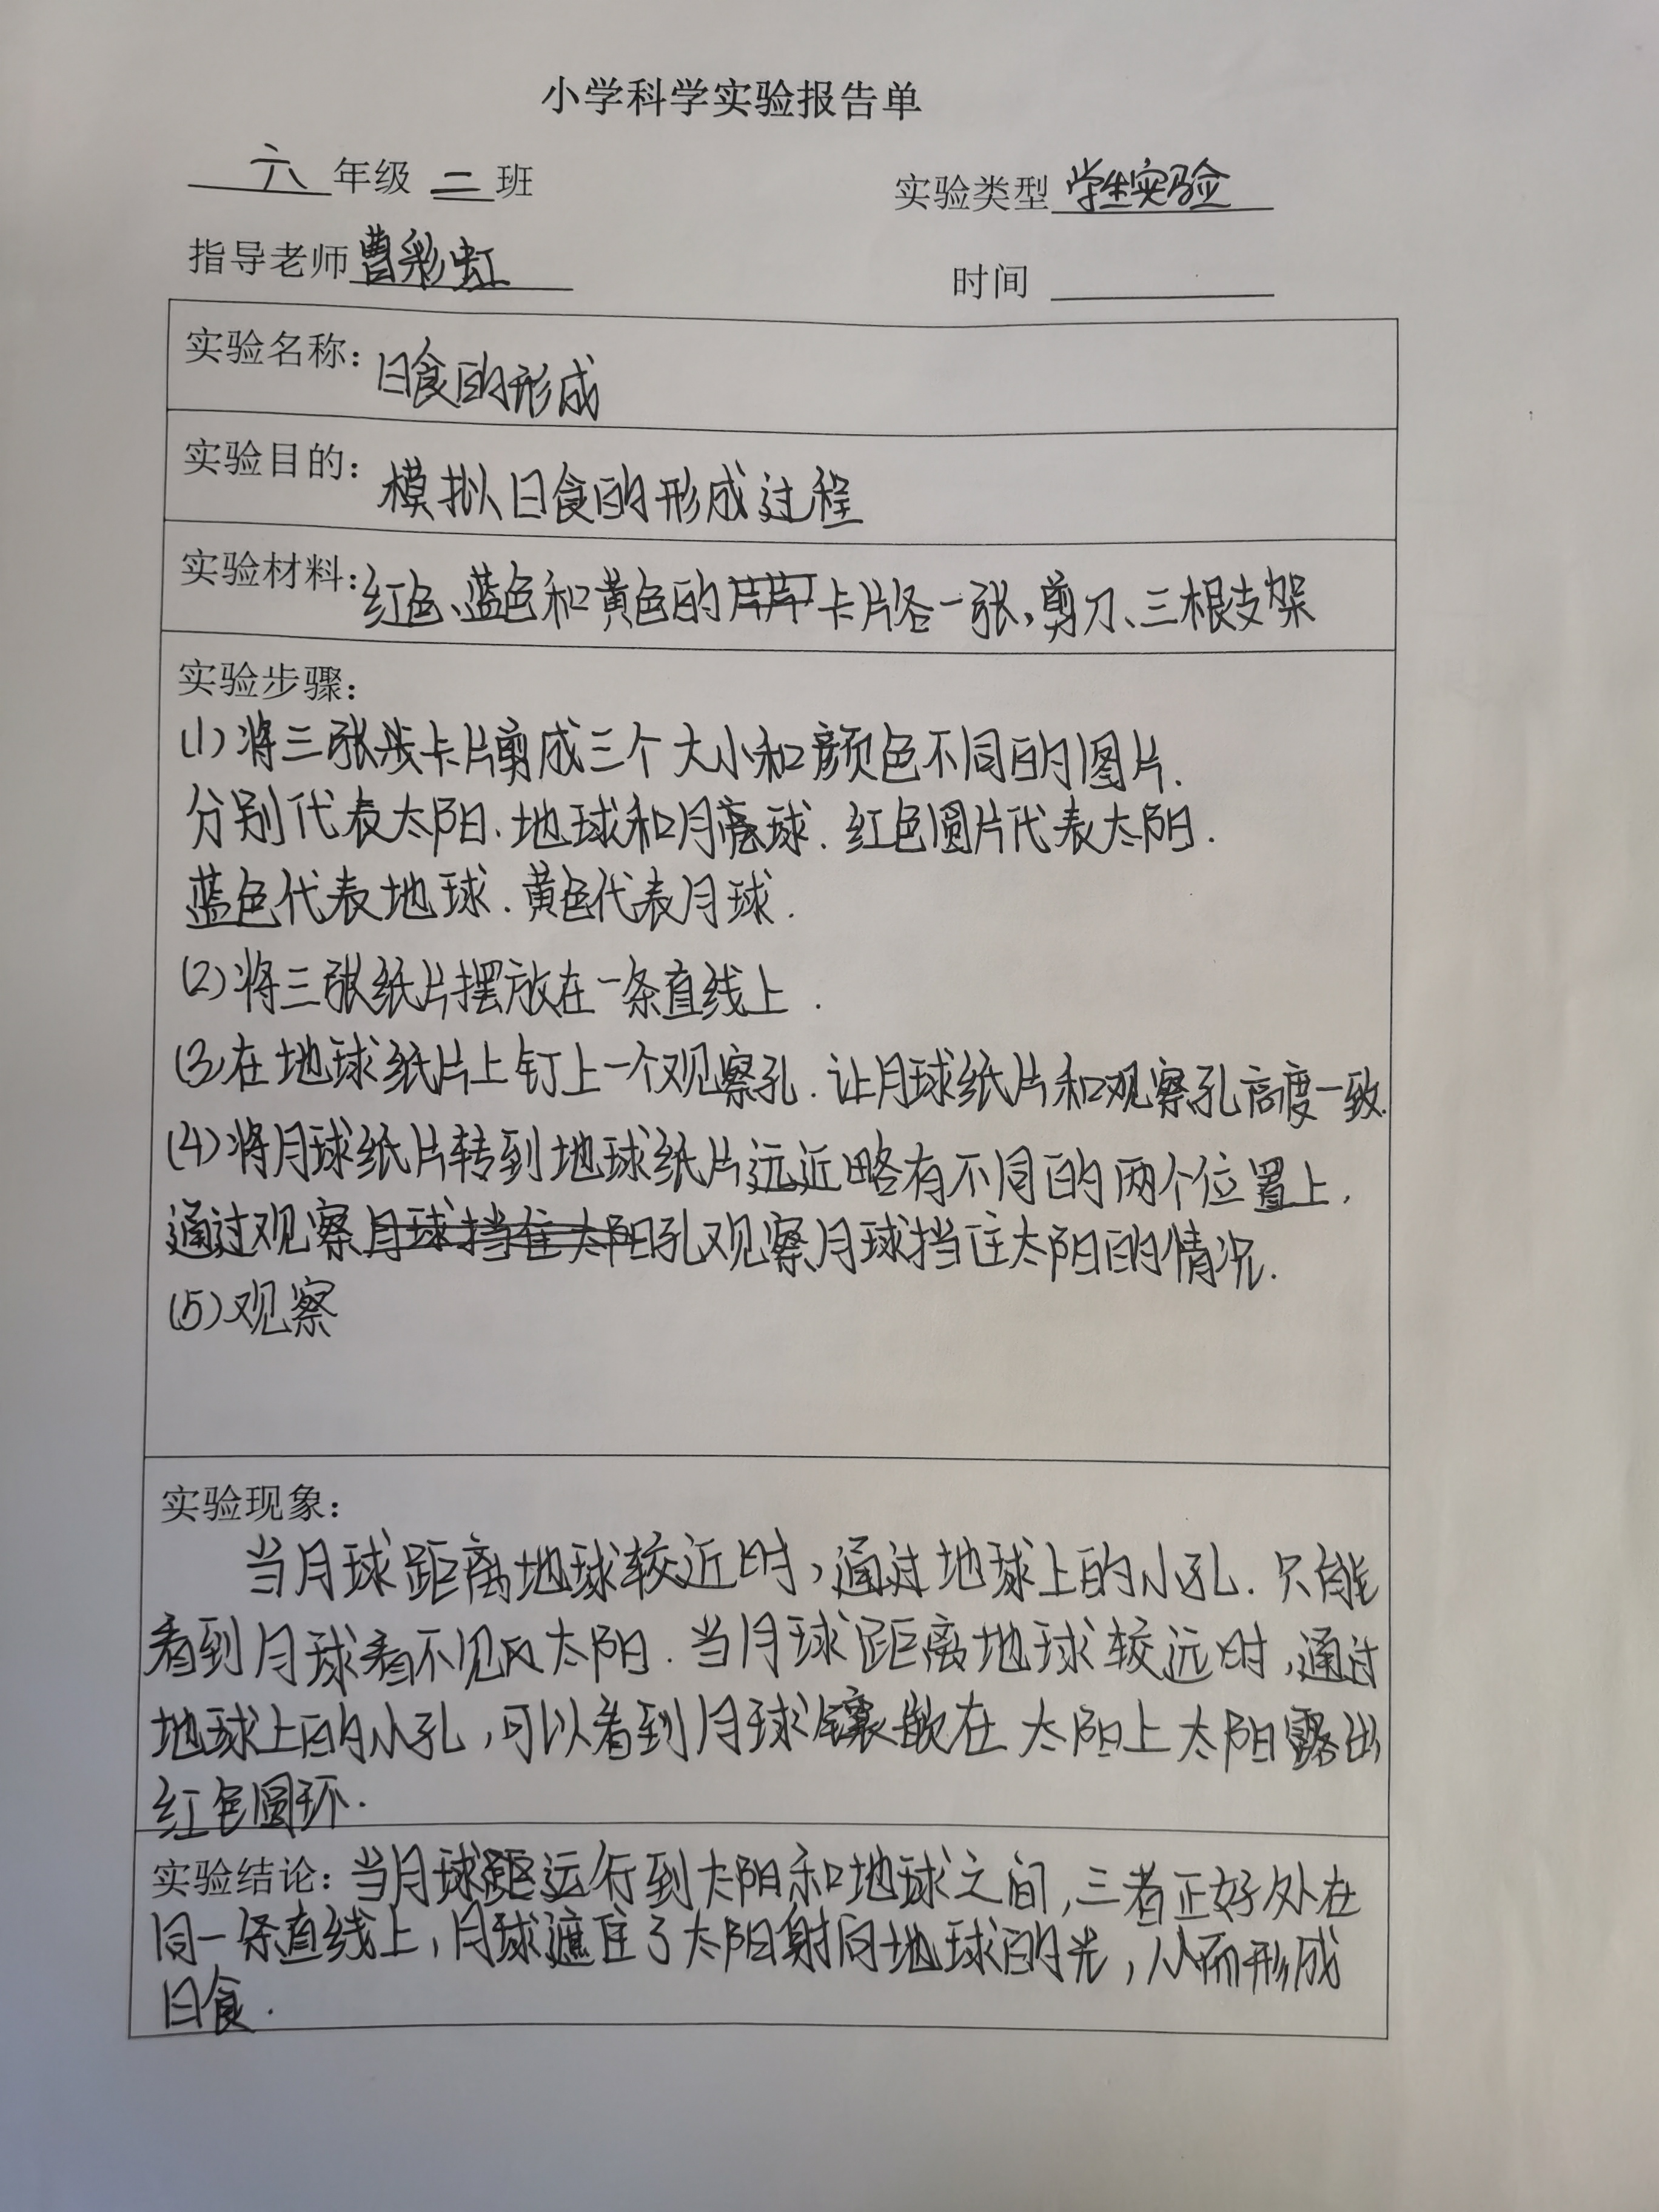 小学科学实验报告单
六年级 二班 实验类型 学生实验
指导老师 曹彩虹 时间
实验名称: 日食的形成
实验目的: 模拟日食的形成过程
实验材料: 红色、蓝色和黄色的卡片各一张,剪刀、三根支架
实验步骤:
(1)将三张卡片剪成三个大小和颜色不同的图片.
分别代表太阳、地球和月球. 红色圆片代表太阳.
蓝色代表地球.黄色代表月球.
(2)将三张纸片摆放在一条直线上.
(3)在地球纸片上钉上一个观察孔.让月球纸片和观察孔高度一致.
(4)将月球纸片转到地球纸片远近略有不同的两个位置上,
通过观察孔观察月球挡住太阳的情况.
(5)观察
实验现象:
当月球距离地球较近时,通过地球上的小孔.只能
看到月球看不见太阳.当月球距离地球较远时,通过
地球上的小孔,可以看到月球镶嵌在太阳上太阳露出
红色圆环.
实验结论: 当月球运行到太阳和地球之间,三者正好处在
同一条直线上,月球遮住了太阳射向地球的光,从而形成
日食.